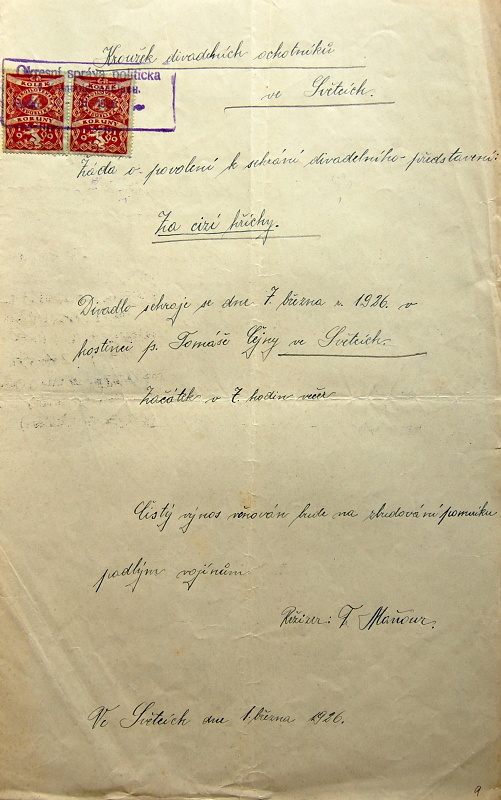 Kroužek divadelních ochotníků
ve Světcích.
Okresní správa politická
KOLEK KOLEK
KORUNY KORUNY
Žádá o povolení k sehrání divadelního představení:
Za cizí hříchy.
Divadlo sehraje se dne 7. března r. 1926. v
hostinci p. Tomáše ve Světcích.
Začátek v 7. hodin večer
Čistý výnos věnován bude na zbudování pomníku
padlým vojínům
Režiser: F. Maňour.
Ve Světcích dne 1. března 1926.
9